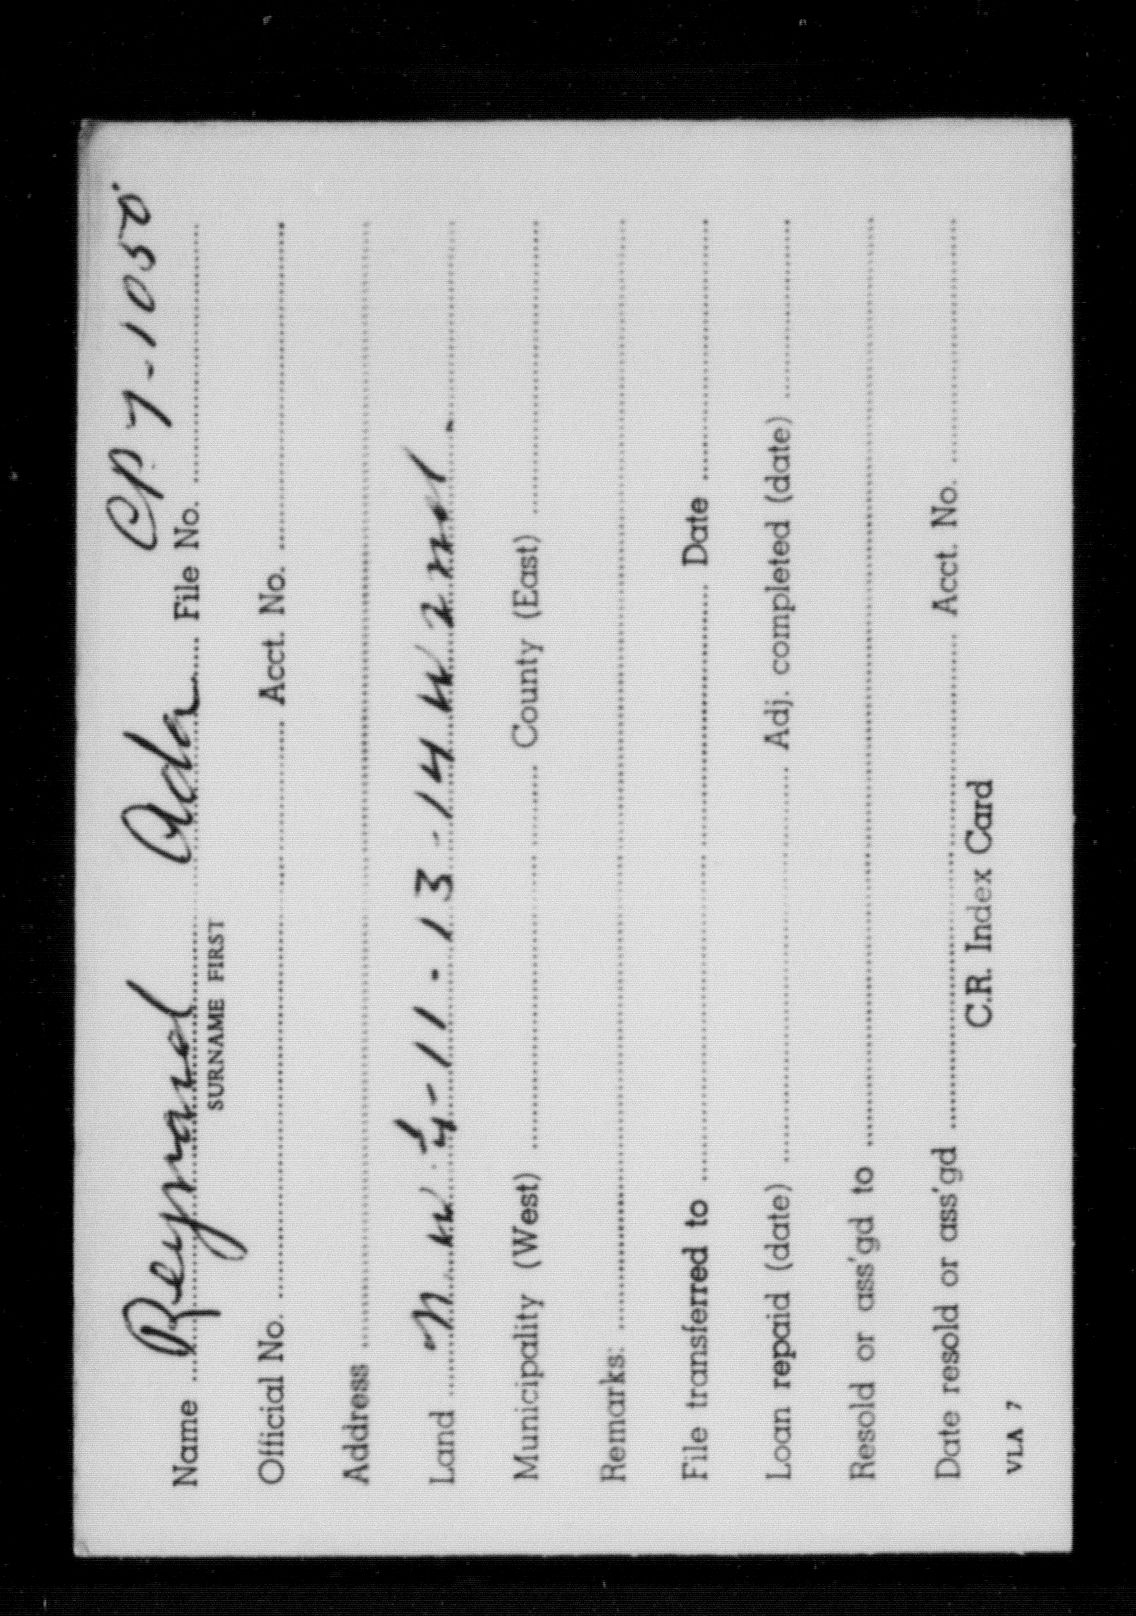 Name Reynard Ada File No. CP 7-1050
SURNAME FIRST
Official No. Acct. No.
Address
Land N.W. ¼-11-13-14 W 2nd.
Municipality (West) County (East)
Remarks:
File transferred to Date
Loan repaid (date) Adj. completed (date)
Resold or ass'gd to
Date resold or ass'gd Acct. No.
C.R. Index Card
VLA 7